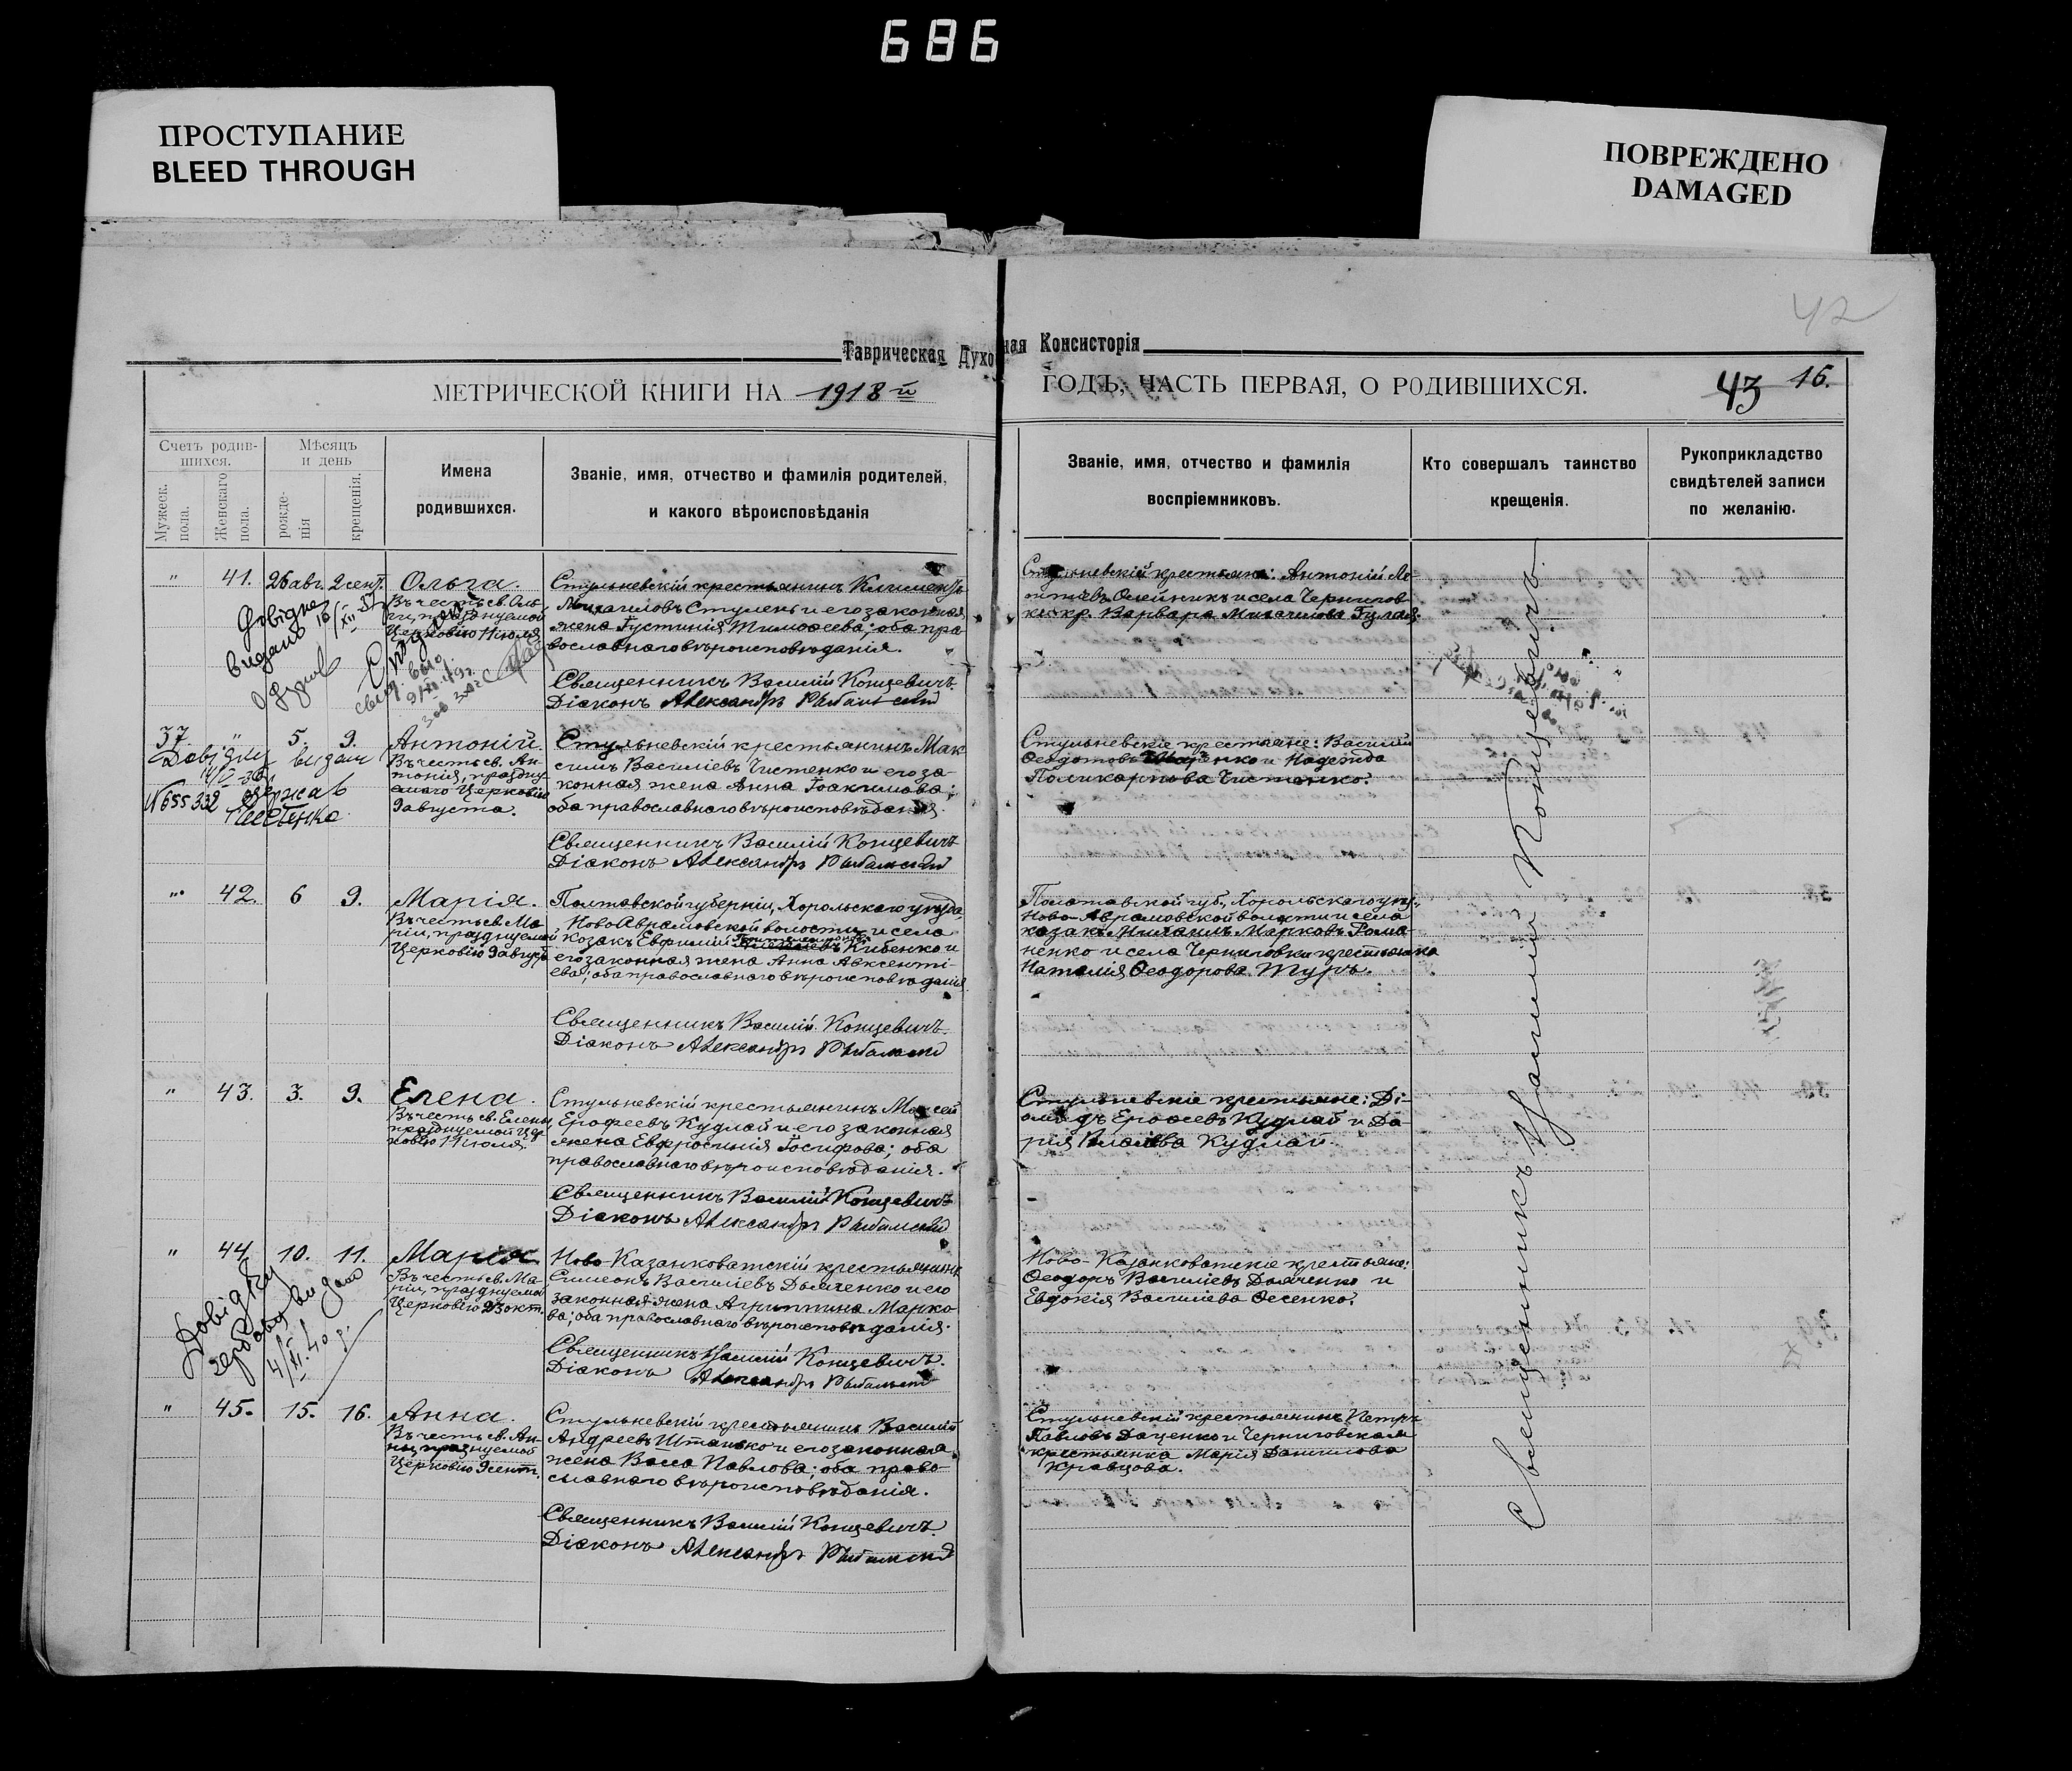 686
ПРОСТУПАНИЕ
BLEED THROUGH
ПОВРЕЖДЕНО
DAMAGED
42
Таврическая Духовная Консисторія
МЕТРИЧЕСКОЙ КНИГИ НА 1918й ГОДЪ, ЧАСТЬ ПЕРВАЯ, О РОДИВШИХСЯ.
43 16.
Счетъ родив-
шихся.
Мужеск. пола.
Женскаго пола.
Мѣсяцъ
и день
рожде-
нія
крещенія.
Имена
родившихся.
Званіе, имя, отчество и фамилія родителей,
и какого вѣроисповѣданія
Званіе, имя, отчество и фамилія
воспріемниковъ.
Кто совершалъ таинство
крещенія.
Рукоприкладство
свидѣтелей записи
по желанію.
" 41. 26 авг. 2 сент. Ольга.
Въ честь св. Оль-
ги, празднуемой
Церковію 11 іюля
видано
Стульневскій крестьянинъ Климентъ
Михаиловъ Стулень и его законная
жена Іустинія Тимоѳеева; оба пра
вославнаго вѣроисповѣданія.
Священникъ Василій Концевичъ.
Діаконъ Александръ
Стульневскій крестьянинъ: Антоній
Олейникъ и села Чернигов-
ки кр. Варвара Михаилова
37. " 5. 9. Антоній.
Въ честь св. Ан-
тонія, праздну
емаго Церковію
9 августа.
№ 655332
Стульневскій крестьянинъ Мак
симъ Василіевъ Чистенко и его за-
конная жена Анна Іоакимова;
оба православнаго вѣроисповѣданія.
Священникъ Василій Концевичъ
Діаконъ Александръ
Стульневскіе крестьяне: Василій
Ѳеодотовъ и Надежда
Поликарпова Чистенко.
" 42. 6 9. Марія.
Въ честь св. Ма-
ріи, празднуемой
Церковію 9 август
Полтавской губерніи, Хорольскаго уѣзда,
Ново Аврамовской волости и села
козакъ Евфимій Кибенко и
его законная жена Анна Авксенті-
ева; оба православнаго вѣроисповѣданія.
Священникъ Василій Концевичъ.
Діаконъ Александръ
Полтавской губ., Хорольскаго уѣз.,
Ново-Аврамовской волости и села
казакъ Михаилъ Марковъ Рома-
ненко и села Черниговки крестьянка
Наталія Ѳеодорова Туръ.
" 43. 3. 9. Елена.
Въ честь св. Елены,
празднуемой Цер-
ковію 11 іюля.
Стульневскій крестьянинъ
Ерофеевъ Кудлай и его законная
жена Евфросинія Іосифова; оба
православнаго вѣроисповѣданія.
Священникъ Василій Концевичъ
Діаконъ Александръ
Стульневскіе крестьяне: Ді-
омидъ Ероѳеевъ Кудлай и Да-
рія Кудлай.
" 44. 10. 11. Марія
Въ честь св. Ма-
ріи, празднуемой
Церковію 23 окт.
Ново-Казанковатскій крестьянинъ
Симеонъ Василіевъ Дьяченко и его
законная жена Агриппина Марко
ва; оба православнаго вѣроисповѣданія.
Священникъ Василій Концевичъ.
Діаконъ Александръ
Ново-Казанковатскіе крестьяне:
Ѳеодоръ Василіевъ Дьяченко и
Евдокія Василіева Ѳесенко.
" 45. 15. 16. Анна.
Въ честь св. Ан-
ны, празднуемой
Церковію 9 сент.
Стульневскій крестьянинъ Василій
Андреевъ Штанько и его законная
жена Васса Павлова; оба право
славнаго вѣроисповѣданія.
Священникъ Василій Концевичъ.
Діаконъ Александръ
Стульневскій крестьянинъ Петръ
Павловъ Даценко и Черниговская
крестьянка Марія Даніилова
Кравцова.
Священникъ Василій Концевичъ.